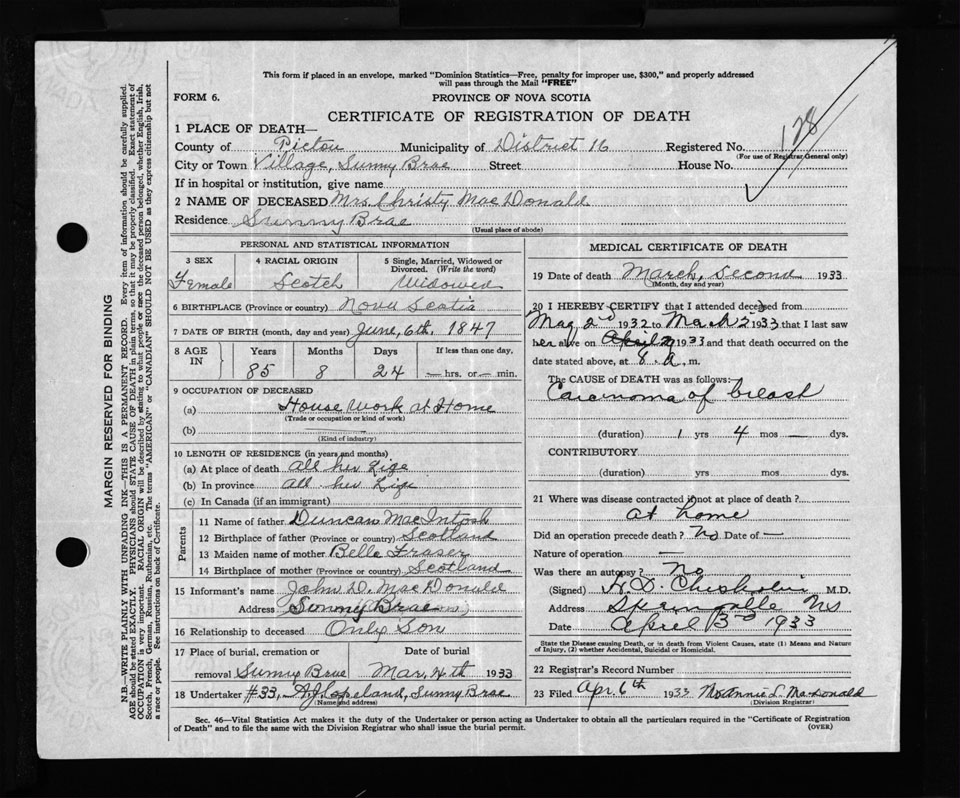 This form if placed in an envelope, marked "Dominion Statistics—Free, penalty for improper use, $300," and properly addressed
will pass through the Mail "FREE"
FORM 6.
PROVINCE OF NOVA SCOTIA
CERTIFICATE OF REGISTRATION OF DEATH
1 PLACE OF DEATH—
County of Pictou Municipality of District 16 Registered No. 128
(For use of Registrar General only)
City or Town Village, Sunny Brae Street House No.
If in hospital or institution, give name
2 NAME OF DECEASED Mrs. Christy MacDonald
Residence Sunny Brae
(Usual place of abode)
PERSONAL AND STATISTICAL INFORMATION
3 SEX 4 RACIAL ORIGIN 5 Single, Married, Widowed or
Divorced. (Write the word)
Female Scotch Widowed
6 BIRTHPLACE (Province or country) Nova Scotia
7 DATE OF BIRTH (month, day and year) June, 6th, 1847
8 AGE IN Years Months Days If less than one day,
85 8 24 — hrs. or — min.
9 OCCUPATION OF DECEASED
(a) House Work at Home
(Trade or occupation or kind of work)
(b)
(Kind of industry)
10 LENGTH OF RESIDENCE (in years and months)
(a) At place of death all her Life
(b) In province all her Life
(c) In Canada (if an immigrant)
Parents
11 Name of father Duncan MacIntosh
12 Birthplace of father (Province or country) Scotland
13 Maiden name of mother Belle Fraser
14 Birthplace of mother (Province or country) Scotland
15 Informant's name John D. MacDonald
Address Sunny Brae
16 Relationship to deceased Only Son
17 Place of burial, cremation or Date of burial
removal Sunny Brae Mar, 4th 1933
18 Undertaker #33, A.J. Copeland, Sunny Brae
(Name and address)
MEDICAL CERTIFICATE OF DEATH
19 Date of death March, second 1933
(Month, day and year)
20 I HEREBY CERTIFY that I attended deceased from
May 2nd 1932 to March 2 1933 that I last saw
her alive on 1933 and that death occurred on the
date stated above, at 8. a. m.
The CAUSE OF DEATH was as follows:
Carcinoma of breast
(duration) 1 yrs 4 mos — dys.
CONTRIBUTORY
(duration) yrs. mos. dys.
21 Where was disease contracted if not at place of death?
at home
Did an operation precede death? No Date of —
Nature of operation —
Was there an autopsy? No
(Signed) H.D. Chisholm M.D.
Address Springville NS
Date April 3rd 1933
State the Disease causing Death, or in death from Violent Causes, state (1) Means and Nature
of Injury, (2) whether Accidental, Suicidal or Homicidal.
22 Registrar's Record Number
23 Filed Apr. 6th 1933 Mrs Annie L. MacDonald
(Division Registrar)
Sec. 46—Vital Statistics Act makes it the duty of the Undertaker or person acting as Undertaker to obtain all the particulars required in the "Certificate of Registration
of Death" and to file the same with the Division Registrar who shall issue the burial permit.
(OVER)
MARGIN RESERVED FOR BINDING
N.B.—WRITE PLAINLY WITH UNFADING INK—THIS IS A PERMANENT RECORD. Every item of information should be carefully supplied.
AGE should be stated EXACTLY. PHYSICIANS should STATE CAUSE OF DEATH in plain terms, so that it may be properly classified. Exact statement of
OCCUPATION is very important. RACIAL ORIGIN will be described by stating to what people or race the deceased person belonged, whether English, Irish,
Scotch, French, German, Russian, Ruthenian, etc. The terms "AMERICAN" or "CANADIAN" SHOULD NOT BE USED as they express citizenship but not
a race or people. See instructions on back of Certificate.